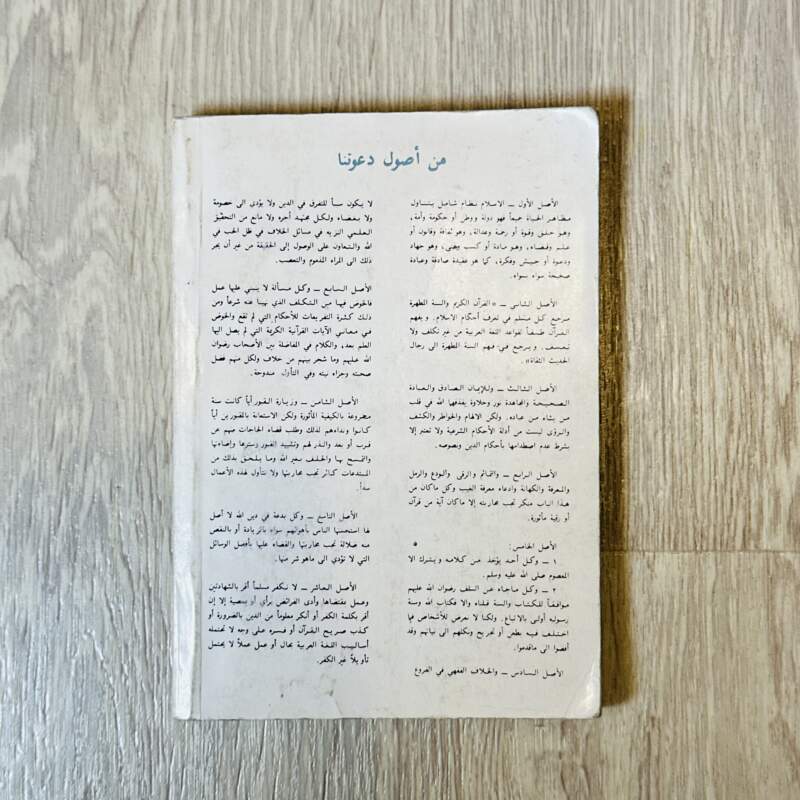 من أصول دعوتنا
الأصل الأول — الاسلام نظام شامل يتناول
مظاهر الحياة جميعاً فهو دولة ووطن أو حكومة وأمة،
وهو خلق وقوة أو رحمة وعدالة، وهو ثقافة وقانون أو
علم وقضاء، وهو مادة أو كسب وغنى، وهو جهاد
ودعوة أو جيش وفكرة، كما هو عقيدة صادقة وعبادة
صحيحة سواء بسواء.
الأصل الثاني — «القرآن الكريم والسنة المطهرة
مرجع كل مسلم في تعرف أحكام الاسلام. ويفهم
القرآن طبقاً لقواعد اللغة العربية من غير تكلف ولا
تعسف. ويرجع في فهم السنة المطهرة الى رجال
الحديث الثقاة».
الأصل الثالث — وللإيمان الصادق والعبادة
الصحيحة والمجاهدة نور وحلاوة يقذفها الله في قلب
من يشاء من عباده. ولكن الالهام والخواطر والكشف
والرؤى ليست من أدلة الأحكام الشرعية ولا تعتبر إلا
بشرط عدم اصطدامها بأحكام الدين ونصوصه.
الأصل الرابع — والتمائم والرقى والودع والرمل
والمعرفة والكهانة وادعاء معرفة الغيب وكل ماكان من
هذا الباب منكر تجب محاربته إلا ماكان آية من قرآن
أو رقية مأثورة.
الأصل الخامس:
١ — وكل أحد يؤخذ من كلامه ويترك الا
المعصوم صلى الله عليه وسلم.
٢ — وكل ماجاء عن السلف رضوان الله عليهم
موافقاً للكتاب والسنة قبلناه والا فكتاب الله وسنة
رسوله أولى بالاتباع. ولكنا لا نعرض للأشخاص فيما
اختلف فيه بطعن أو تجريح ونكلهم الى نياتهم وقد
أفضوا الى ماقدموا.
الأصل السادس — والخلاف الفقهي في الفروع
لا يكون سبباً للتفرق في الدين ولا يؤدى الى خصومة
ولا بغضاء ولكل مجتهد أجره ولا مانع من التحقيق
العلمي النزيه في مسائل الخلاف في ظل الحب في
الله والتعاون على الوصول إلى الحقيقة من غير أن يجر
ذلك الى المراء المذموم والتعصب.
الأصل السابع — وكل مسألة لا ينبني عليها عمل
فالخوض فيها من التكلف الذي نهينا عنه شرعاً ومن
ذلك كثرة التفريعات للأحكام التي لم تقع والخوض
في معاني الآيات القرآنية الكريمة التي لم يصل اليها
العلم بعد، والكلام في المفاضلة بين الأصحاب رضوان
الله عليهم وما شجر بينهم من خلاف ولكل منهم فضل
صحبته وجزاء نيته وفي التأول مندوحة.
الأصل الثامن — وزيارة القبور أياً كانت سنة
مشروعة بالكيفية المأثورة ولكن الاستعانة بالمقبورين أياً
كانوا ونداءهم لذلك وطلب قضاء الحاجات منهم عن
قرب أو بعد والنذر لهم وتشييد القبور وسترها وإضاءتها
والتمسح بها والحلف بغير الله وما يلحق بذلك من
المبتدعات كبائر تجب محاربتها ولا نتأول لهذه الأعمال
سداً.
الأصل التاسع — وكل بدعة في دين الله لا أصل
لها استحسنها الناس بأهوائهم سواء بالزيادة أو بالنقص
منه ضلالة تجب محاربتها والقضاء عليها بأفضل الوسائل
التي لا تؤدي الى ماهو شر منها.
الأصل العاشر — لا نكفر مسلماً أقر بالشهادتين
وعمل بمقتضاها وأدى الفرائض برأي أو بمعصية إلا إن
أقر بكلمة الكفر أو أنكر معلوماً من الدين بالضرورة أو
كذب صريح القرآن أو فسره على وجه لا تحتمله
أساليب اللغة العربية بحال أو عمل عملاً لا يحتمل
تأويلاً غير الكفر.